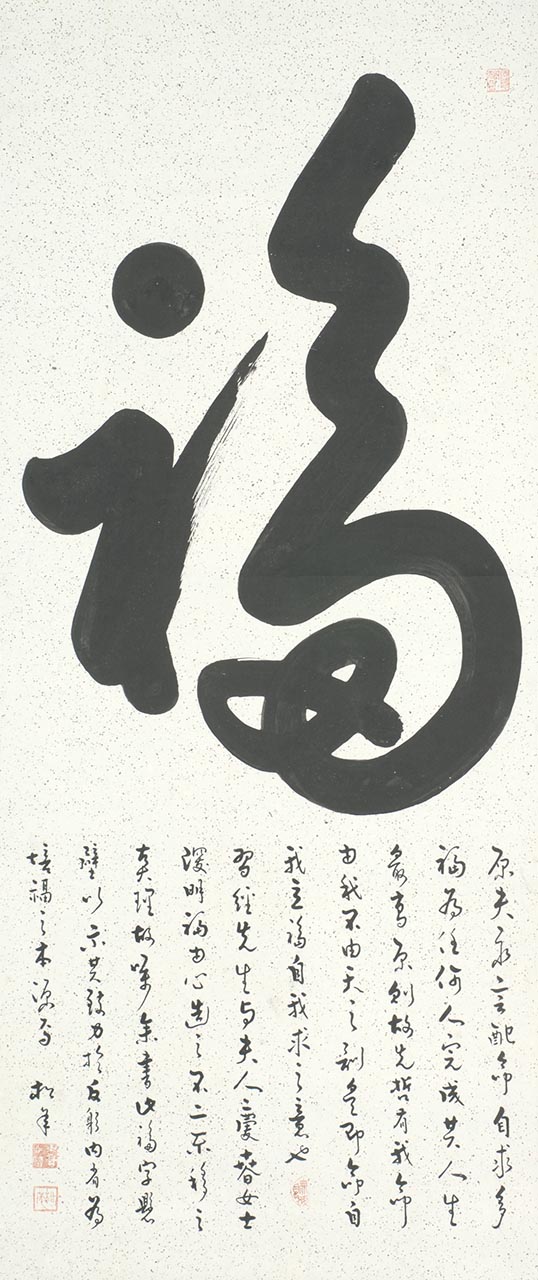 福
原夫永言配命自求多
福為任何人完成其人生
最高原則故先哲有我命
由我不由天之訓是即命自
我立福自我求之意也
習經先生与夫人慶春女士
深明福由心造之不二不移之
真理故囑余書此福字懸
壁以示其致力於反躬内省為
培福之本源焉 松年